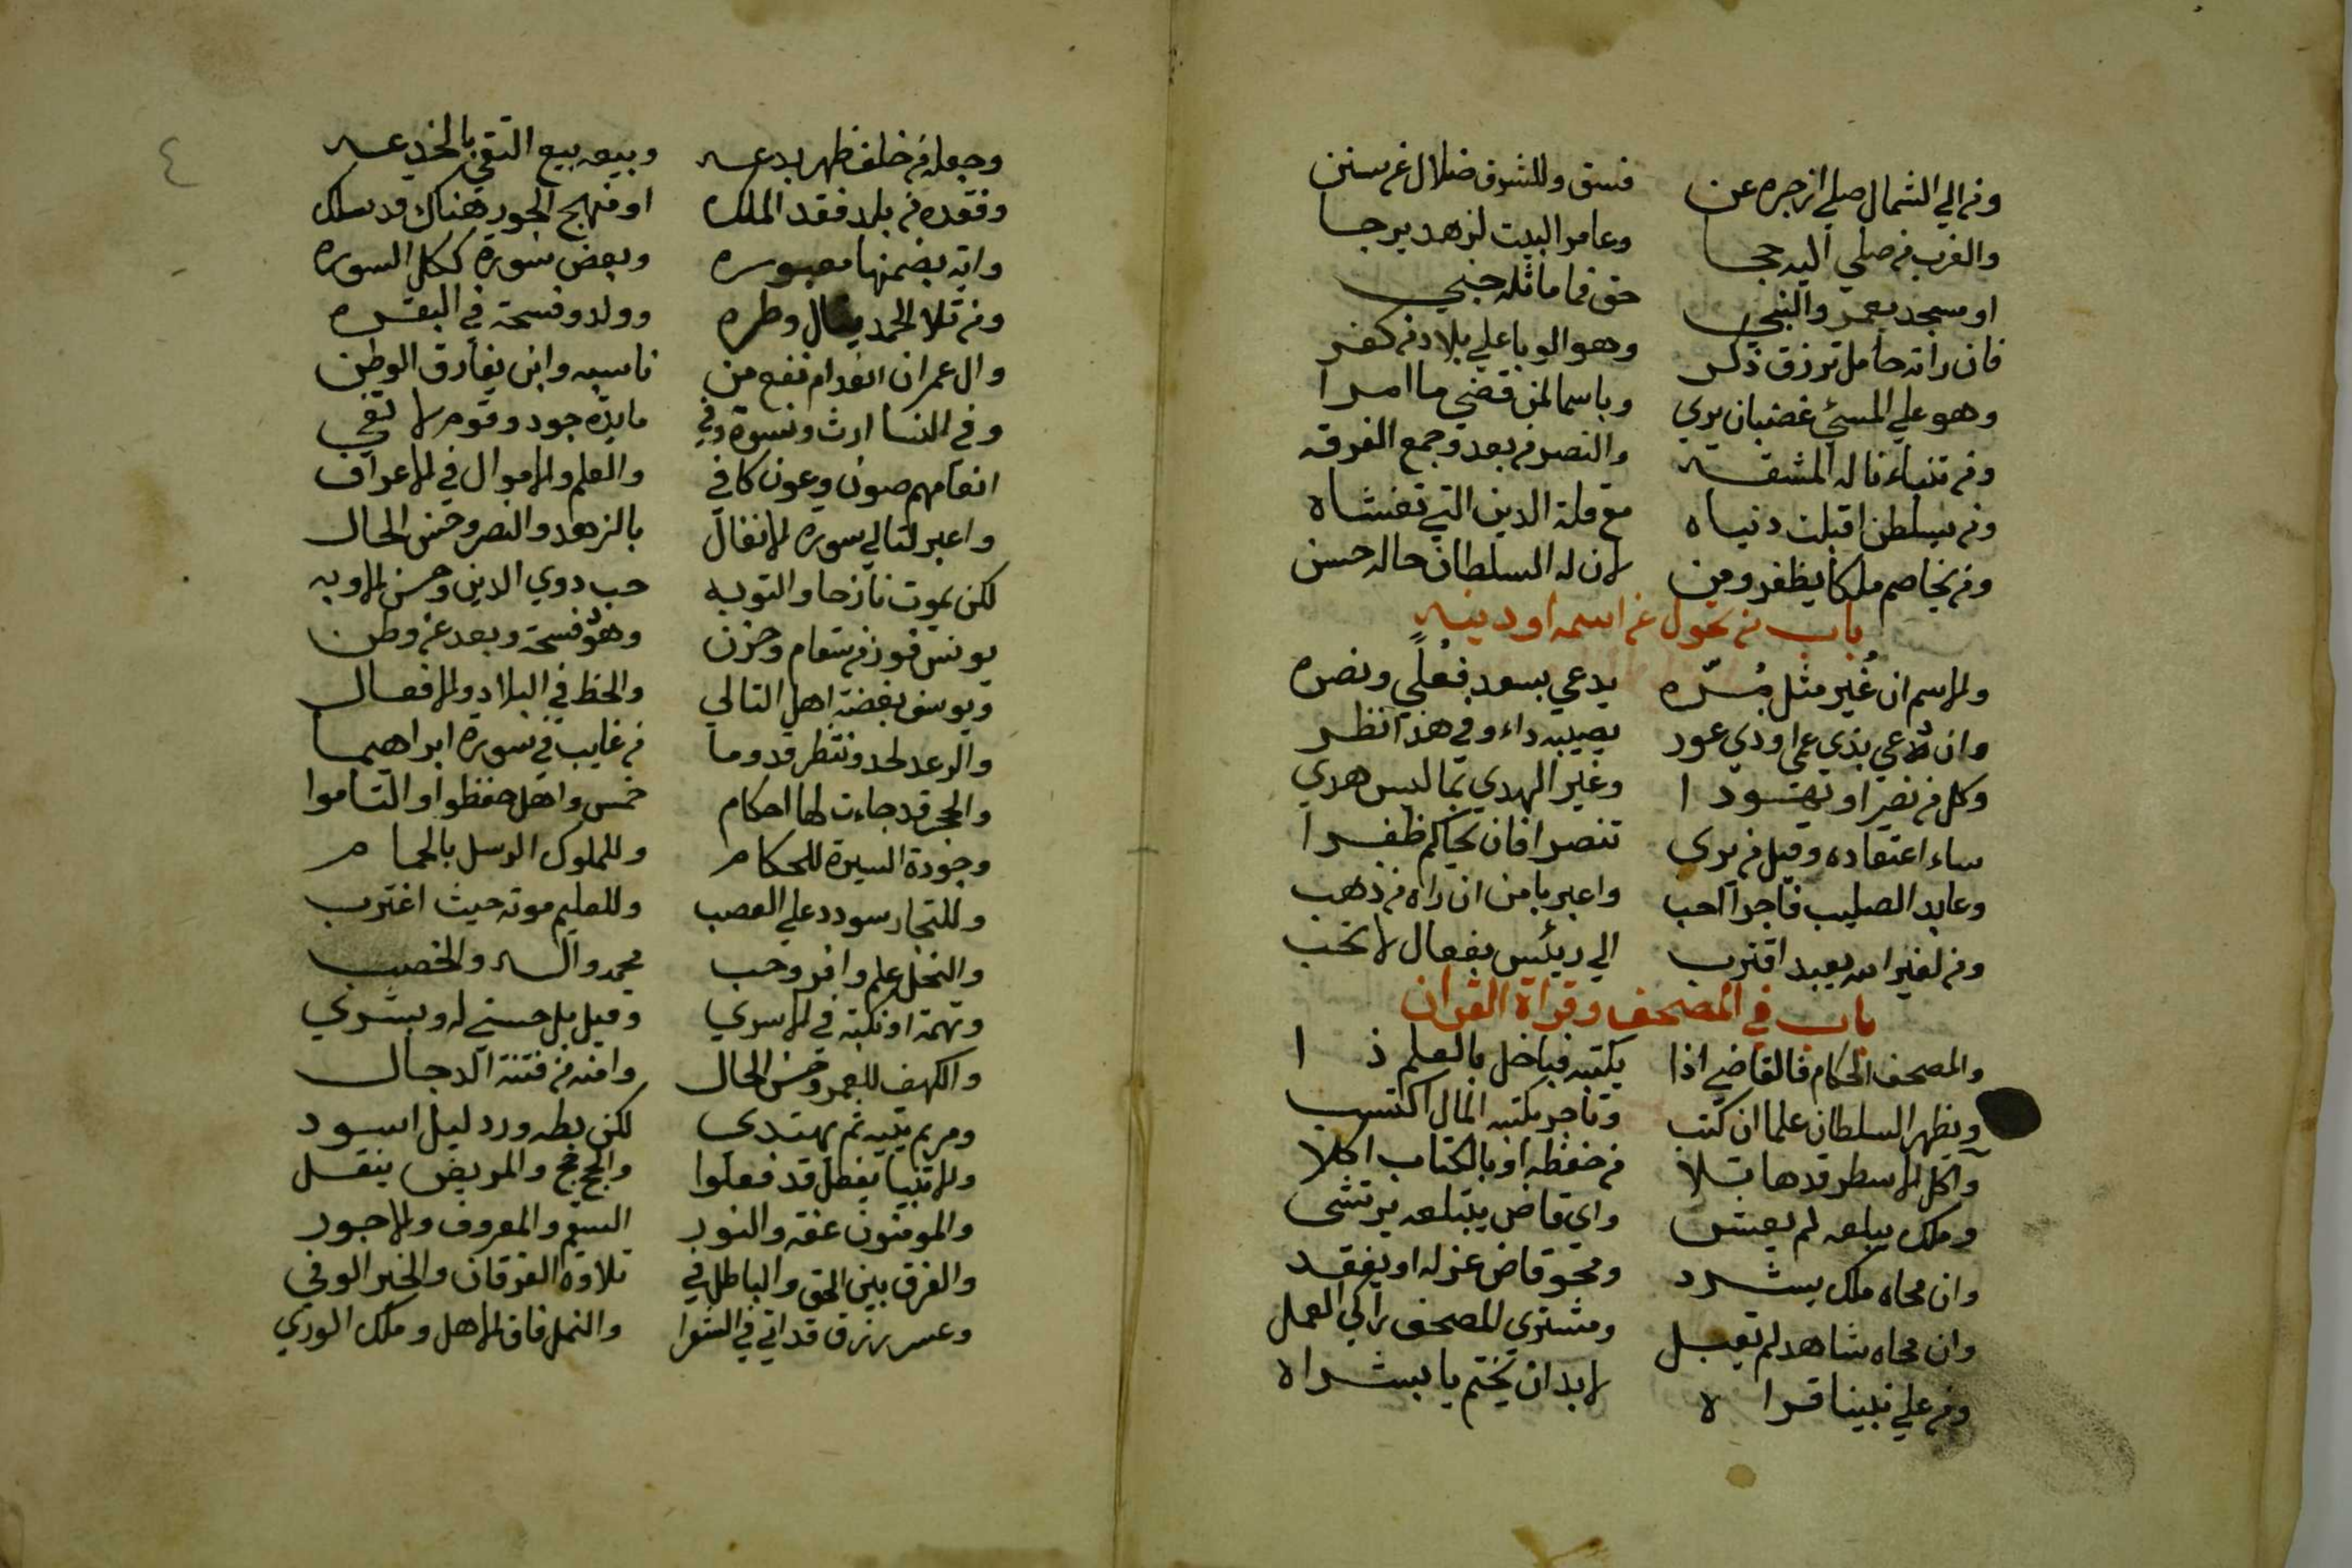 ومن الي الشمال صلي ازجره عن فسق وللشرق ضلال عن سنن
والغرب من صلي اليه حجا وعامر البيت لزهد يرجا
او مسجد يعمر والنبي حق فما ماثله جني
فان راته حامل ترزق ذكر وهو الوبا علي بلاد من كفر
وهو علي المسئ غضبان يري وباسما لمن قضي ما امرا
ومن تنباء ناله المشقه والنصر من بعد وجمع الفرقه
ومن يسلطن اقبلت دنياه مع قلة الدين التي تغشاه
ومن يخاصم ملكا يظفر ومن لان له السلطان حاله حسن
باب من تحول عن اسمه او دينه
والاسم ان غير مثل مره يدعي بسعد فعلي ونصره
وان دعي بذي عمي او ذي عور يصيبه داء وفي هذا نظر
وكل من نصر او تهودا وغير الهدي بما ليس هدي
ساء اعتقاده وقيل من يري تنصرا فان يحاكم ظفرا
وعابد الصليب فاجرا احب واعبر بامن ان راه من ذهب
ومن لغير الله يعبد اقترب الي رئيس بفعال لا تحب
باب في المصحف وقراة القران
والمصحف الحكام فالقاضي اذا يكتبه فباخل بالعلم ذا
ويظهر السلطان علما ان كتب وتاجر يكتبه المال اكتسب
واكل الاسطر قدها تلا من حفظه او بالكتاب اكلا
وملك يبلعه لم يعش واي قاض يبتلعه يرتشي
وان محاه ملك يشرد ومحو قاض عزله او يفقد
وان محاه شاهد لم تقبل ومشتري المصحف زاكي العمل
ومن علي نبينا قراه لا بد ان يختم يا بشراه
وجعله من خلف ظهر بدعه وبيعه بيع التقي بالخدعه
وفقده من بلد فقد الملك او منهج الجور هناك قد سلك
واية بضمنها معبوره وبعض سورة ككل السوره
ومن تلا الحمد ينال وطره وولد وفسحة في البقره
وال عمران انعدام نفع من ناسبه وابن يفارق الوطن
وفي النسا ارث ونسوة وفي مايدة جود وقوم لا تفي
انعامهم صون وعون كافي والعلم والاموال في الاعراف
واعبر لتالي سورة الانفال بالزهد والنصر وحسن الحال
لكن يموت نازحا والتوبه حب دوي الدين وحسن الاوبه
يونس فوز من سقام وحزن وهود فسحة وبعد عن وطن
ويوسف بغضة اهل التالي والحظ في البلاد والافعال
والرعد لحد وننتظر قدوما من غايب في سورة ابراهيما
والحجر قد جاءت لها احكام خمس واهل حفظوا او التاموا
وجودة السيرة للحكام وللملوك الرسل بالحمام
وللتجار سودد علي العصب وللعليم موته حيث اغترب
والنحل علم وافر وحب محمد واله والخصب
وتهمة او نكبة في الاسري وقيل بل حسني له وبشري
والكهف للعمر وحسن الحال وامنه من فتنة الدجال
ومريم يتيه ثم يهتدي لكن بطه ورد ليل اسود
وللانبيا بفعل قد فعلوا والحج حج والمريض ينقل
والمومنون عفة والنور السقم والمعروف والاجور
والفرق بين الحق والباطل في تلاوة الفرقان والخير الوفي
وعسر رزق قد اتي في الشعرا والنمل فاق الاهل وملك الوري
٤